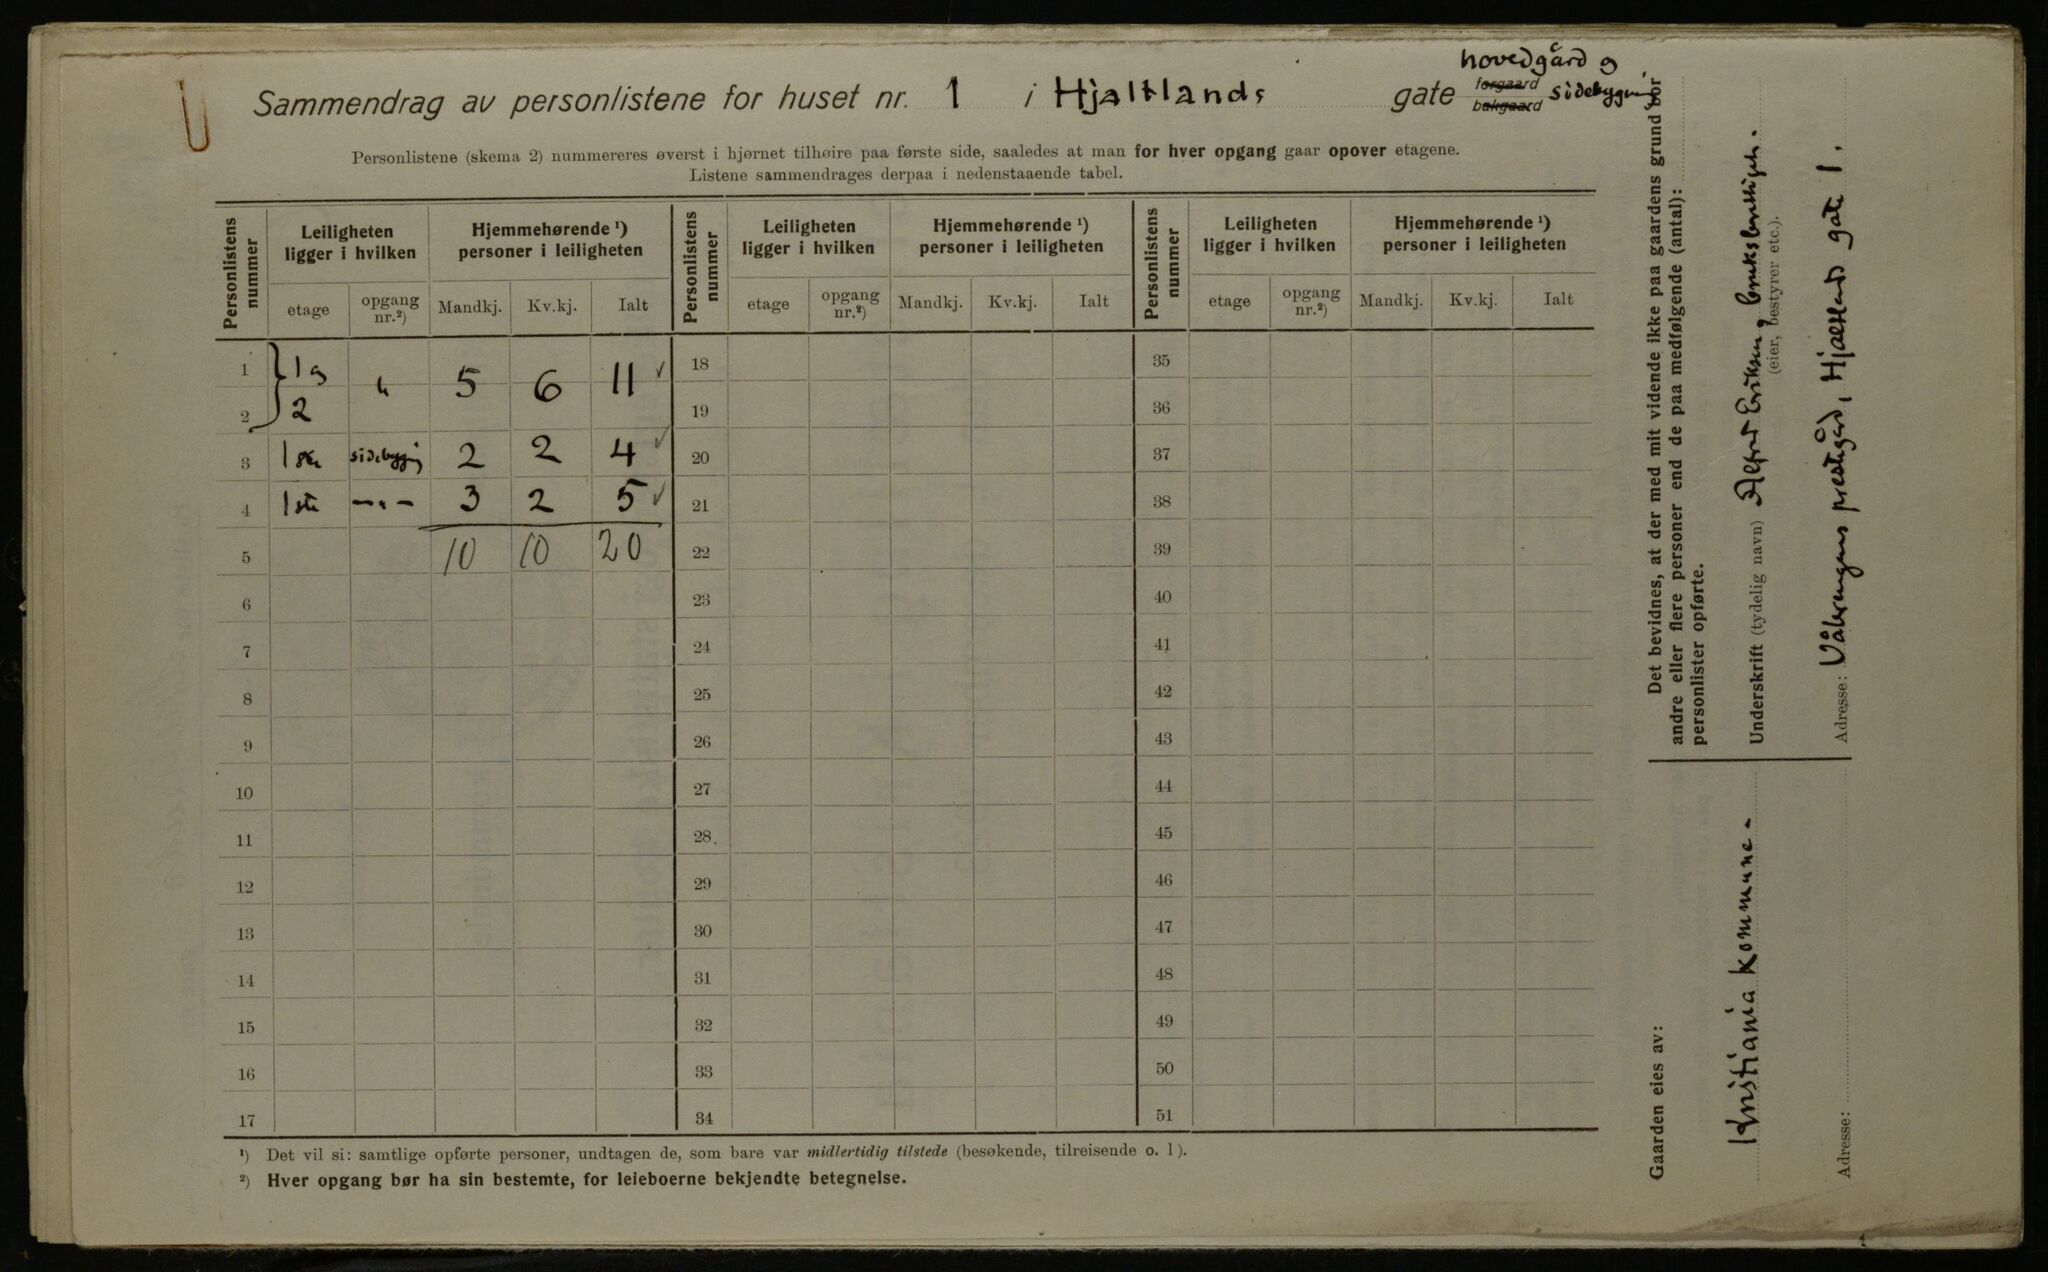 hovedgård og
Sammendrag av personlistene for huset nr. 1 i Hjaltlands gate forgaard sidebygning
bakgaard
Personlistene (skema 2) nummereres øverst i hjørnet tilhøire paa første side, saaledes at man for hver opgang gaar opover etagene.
Listene sammendrages derpaa i nedenstaaende tabel.
Personlistens nummer
Leiligheten ligger i hvilken
Hjemmehørende ¹) personer i leiligheten
Personlistens nummer
Leiligheten ligger i hvilken
Hjemmehørende ¹) personer i leiligheten
Personlistens nummer
Leiligheten ligger i hvilken
Hjemmehørende ¹) personer i leiligheten
etage opgang nr.²) Mandkj. Kv.kj. Ialt etage opgang nr.²) Mandkj. Kv.kj. Ialt etage opgang nr.²) Mandkj. Kv.kj. Ialt
1 1 og " 5 6 11 ✓ 18 35
2 2 19 36
3 1ste sidebygning 2 2 4 ✓ 20 37
4 1ste —"— 3 2 5 ✓ 21 38
5 10 10 20 22 39
6 23 40
7 24 41
8 25 42
9 26 43
10 27 44
11 28 45
12 29 46
13 30 47
14 31 48
15 32 49
16 33 50
17 34 51
¹) Det vil si: samtlige opførte personer, undtagen de, som bare var midlertidig tilstede (besøkende, tilreisende o. l).
²) Hver opgang bør ha sin bestemte, for leieboerne bekjendte betegnelse.
Det bevidnes, at der med mit vidende ikke paa gaardens grund bor
andre eller flere personer end de paa medfølgende (antal):
personlister opførte.
Underskrift (tydelig navn) Alfred Eriksen, bruksberettiget.
(eier, bestyrer etc.).
Adresse: Vålerengens prestegård, Hjaltlands gate 1.
Gaarden eies av:
Kristiania kommune –
Adresse: